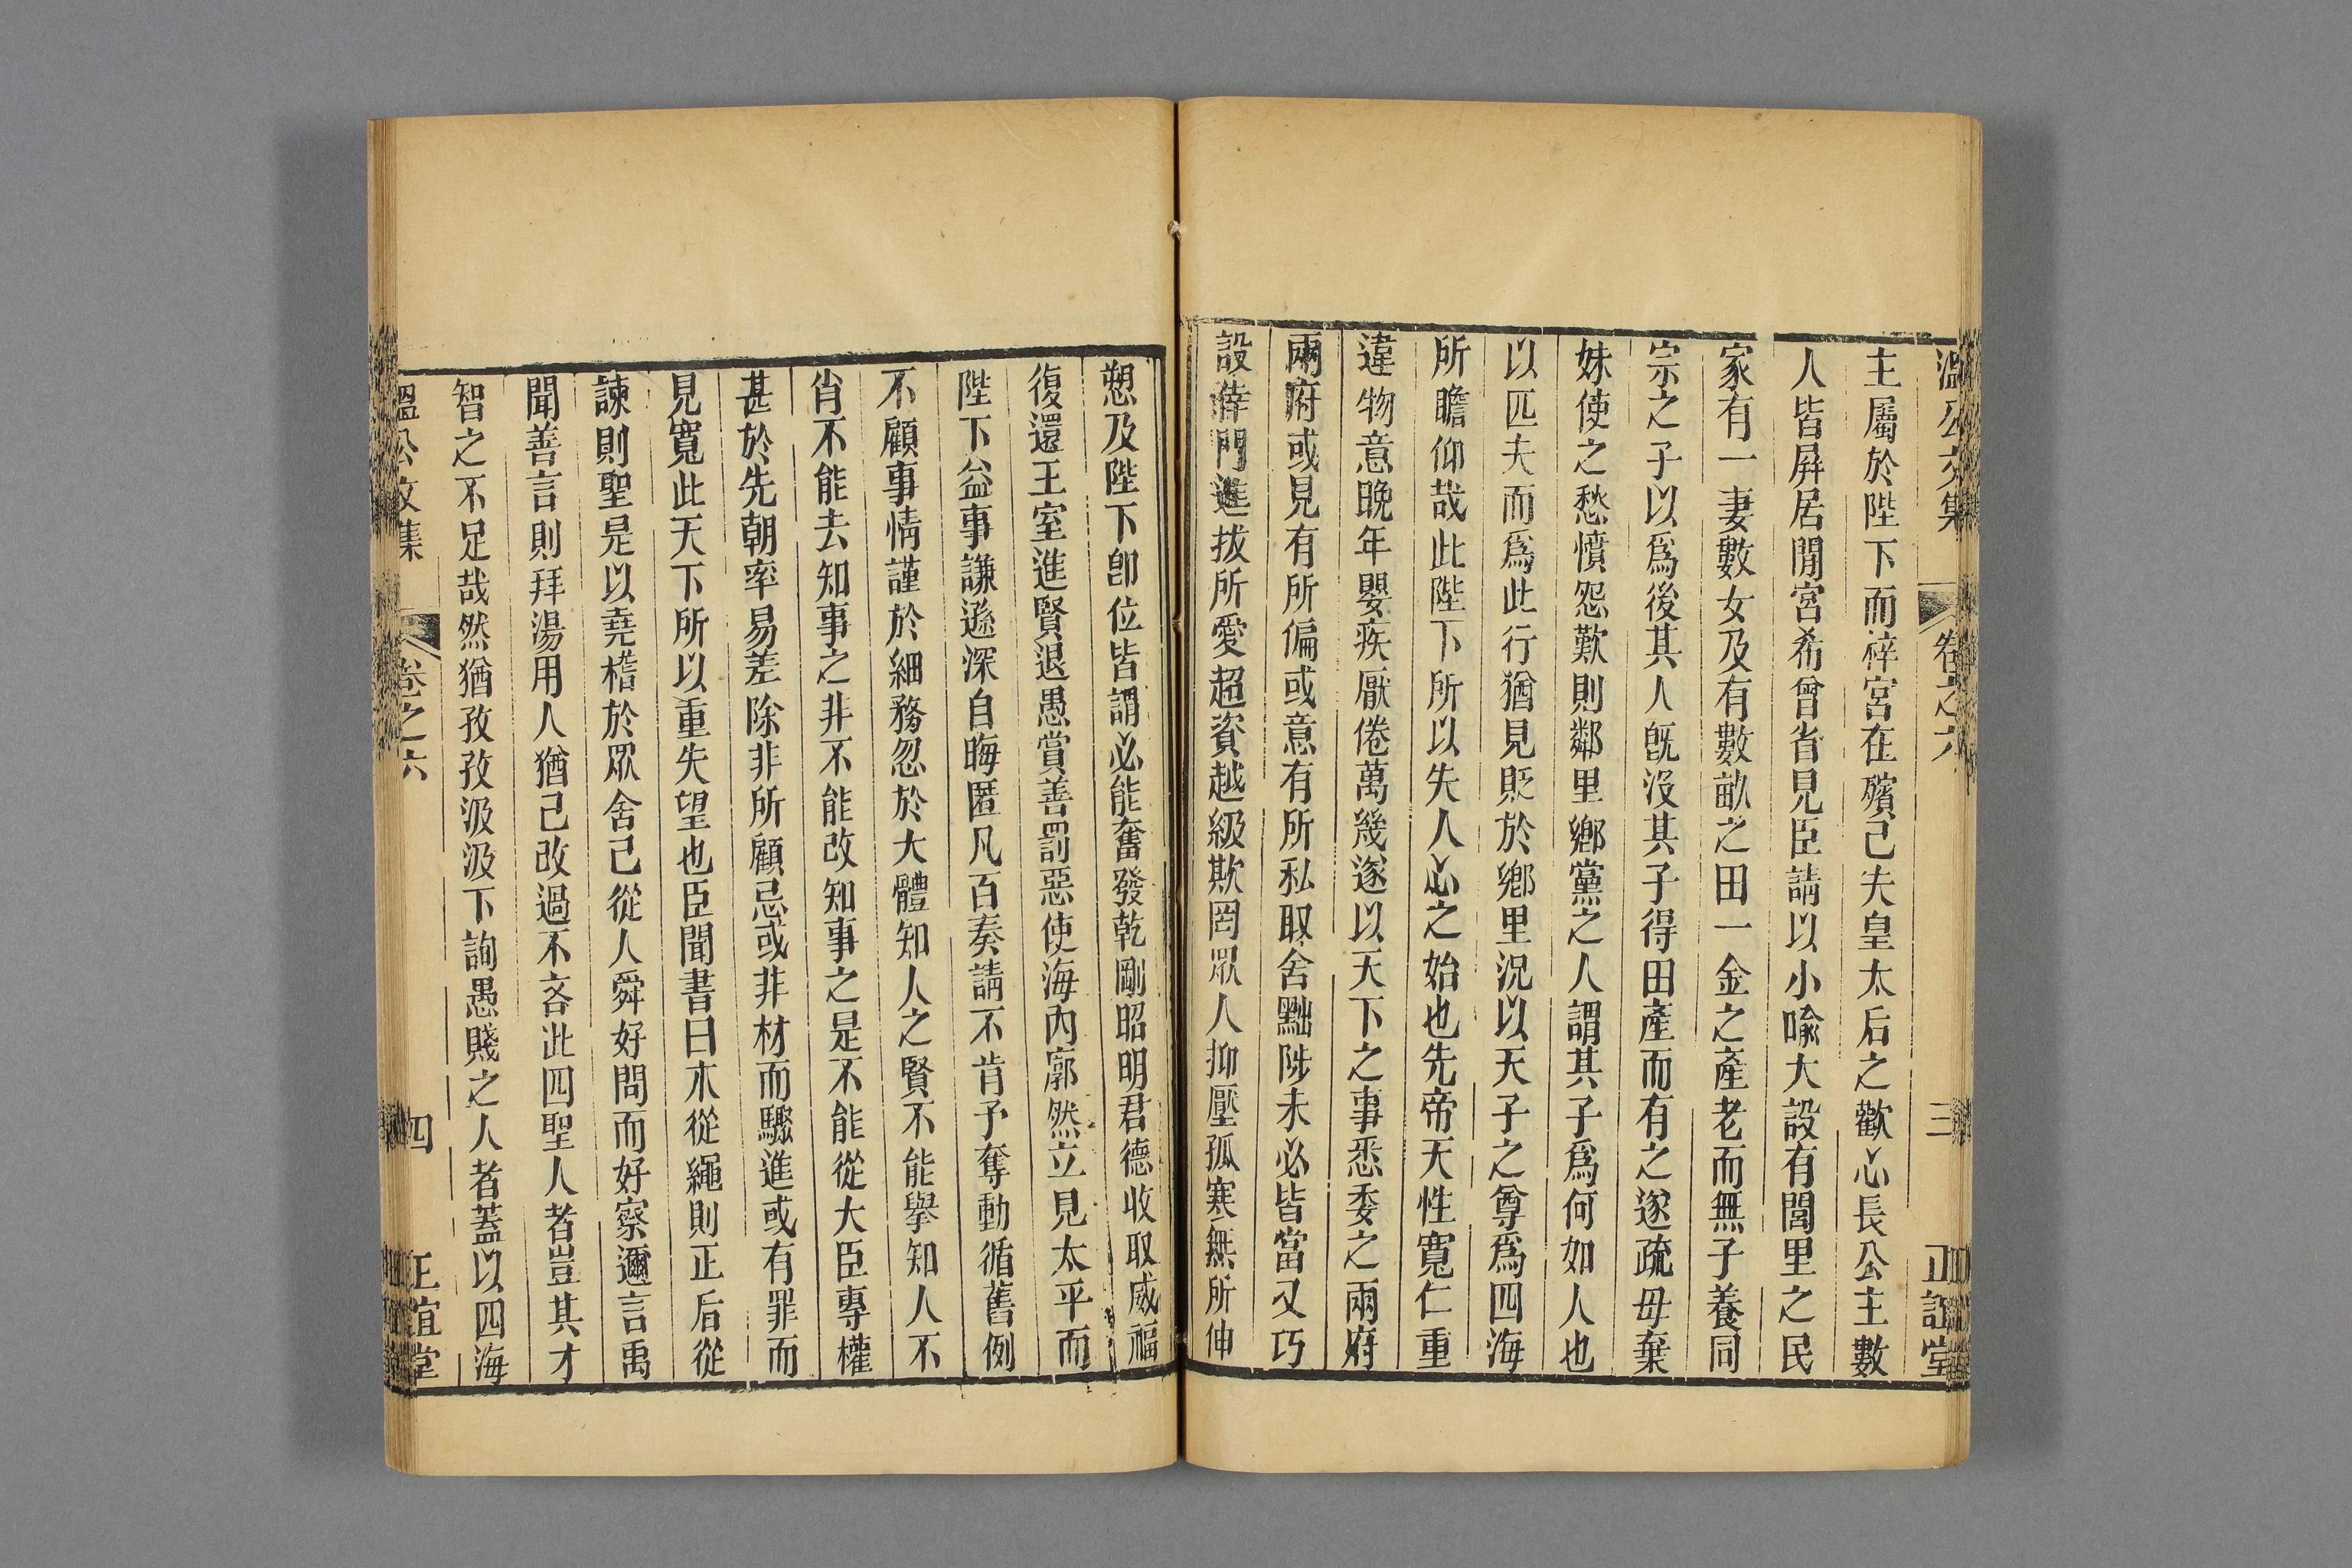 溫公文集 卷之六 三 正誼堂
主屬於陛下而梓宮在殯己夫皇太后之歡心長公主數
人皆屛居閒宮希曾省見臣請以小喩大設有閭里之民
家有一妻數女及有數畝之田一金之產老而無子養同
宗之子以爲後其人旣沒其子得田產而有之遂疏母棄
妹使之愁憤怨歎則鄰里鄉黨之人謂其子爲何如人也
以匹夫而爲此行猶見貶於鄉里況以天子之尊爲四海
所瞻仰哉此陛下所以失人心之始也先帝天性寬仁重
違物意晚年嬰疾厭倦萬幾遂以天下之事悉委之兩府
兩府或見有所偏或意有所私取舍黜陟未必皆當又巧
設倖門進拔所愛超資越級欺罔眾人抑壓孤寒無所伸
愬及陛下卽位皆謂必能奮發乾剛昭明君德收取威福
復還王室進賢退愚賞善罰惡使海內廓然立見太平而
陛下益事謙遜深自晦匿凡百奏請不肯予奪動循舊例
不顧事情謹於細務忽於大體知人之賢不能舉知人不
肖不能去知事之非不能改知事之是不能從大臣專權
甚於先朝率易差除非所顧忌或非材而驟進或有罪而
見寬此天下所以重失望也臣聞書曰木從繩則正后從
諫則聖是以堯稽於眾舍己從人舜好問而好察邇言禹
聞善言則拜湯用人猶己改過不吝此四聖人者豈其才
智之不足哉然猶孜孜汲汲下詢愚賤之人者蓋以四海
溫公文集 卷之六 四 正誼堂